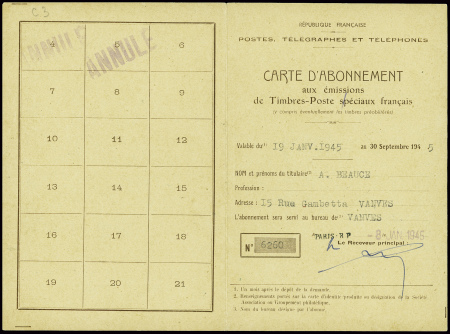 C3
ANNULÉ
ANNULÉ
4 5 6
7 8 9
10 11 12
13 14 15
16 17 18
19 20 21
RÉPUBLIQUE FRANÇAISE
POSTES, TÉLÉGRAPHES ET TÉLÉPHONES
CARTE D'ABONNEMENT
aux émissions
de Timbres-Poste spéciaux français
(y compris éventuellement les timbres préoblitérés)
Valable du 19 JANV.1945 au 30 Septembre 1945
NOM et prénoms du titulaire A. MEAUCE
Profession :
Adresse : 15 Rue Gambetta VANVES
L'abonnement sera servi au bureau de VANVES
PARIS. R.P -8 JAN 1945
Le Receveur principal :
N° 6260
1. Un mois après le dépôt de la demande.
2. Renseignements portés sur la carte d'identité produite ou désignation de la Société
Association ou Groupement philatélique.
3. Nom du bureau désigné par l'abonné.